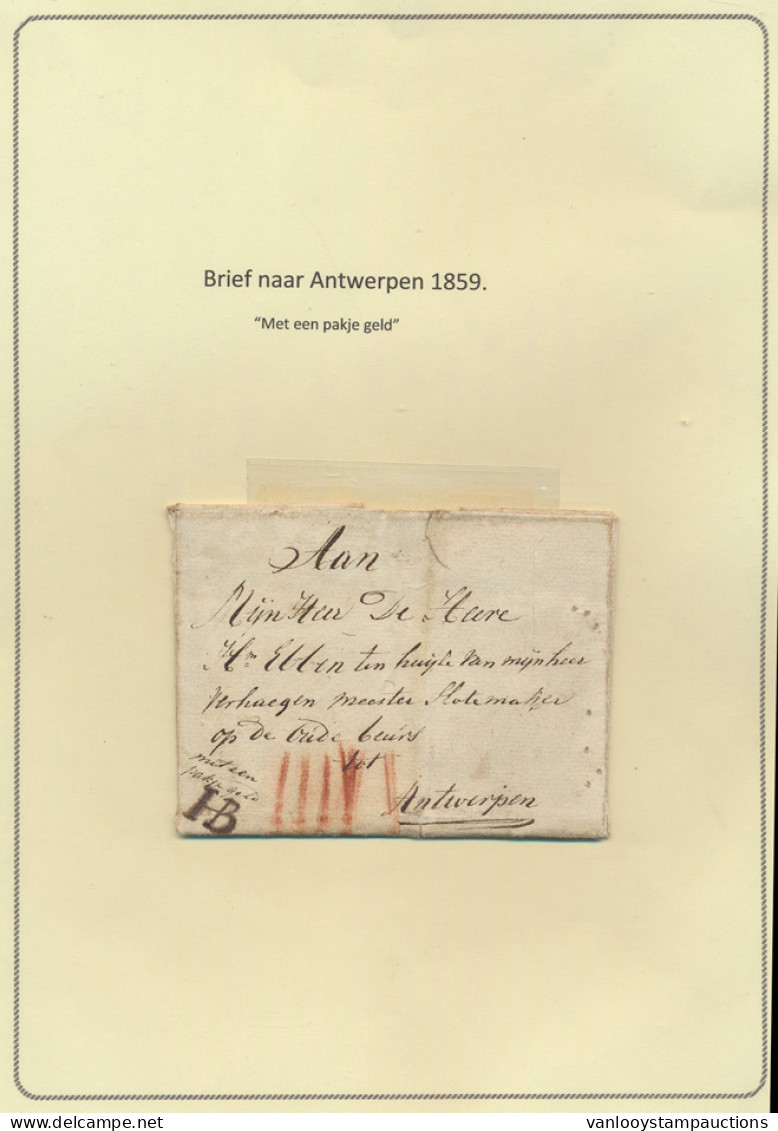 Brief naar Antwerpen 1859.
“Met een pakje geld”
Aan
Mijn Heer De Heere
Hm Ebben ten huijse van mijnheer
verhaegen meester Slotemaker
op de oude beurs
tot
met een
pakje geld
Antwerpen
HB
delcampe.net
vanlooystampauctions